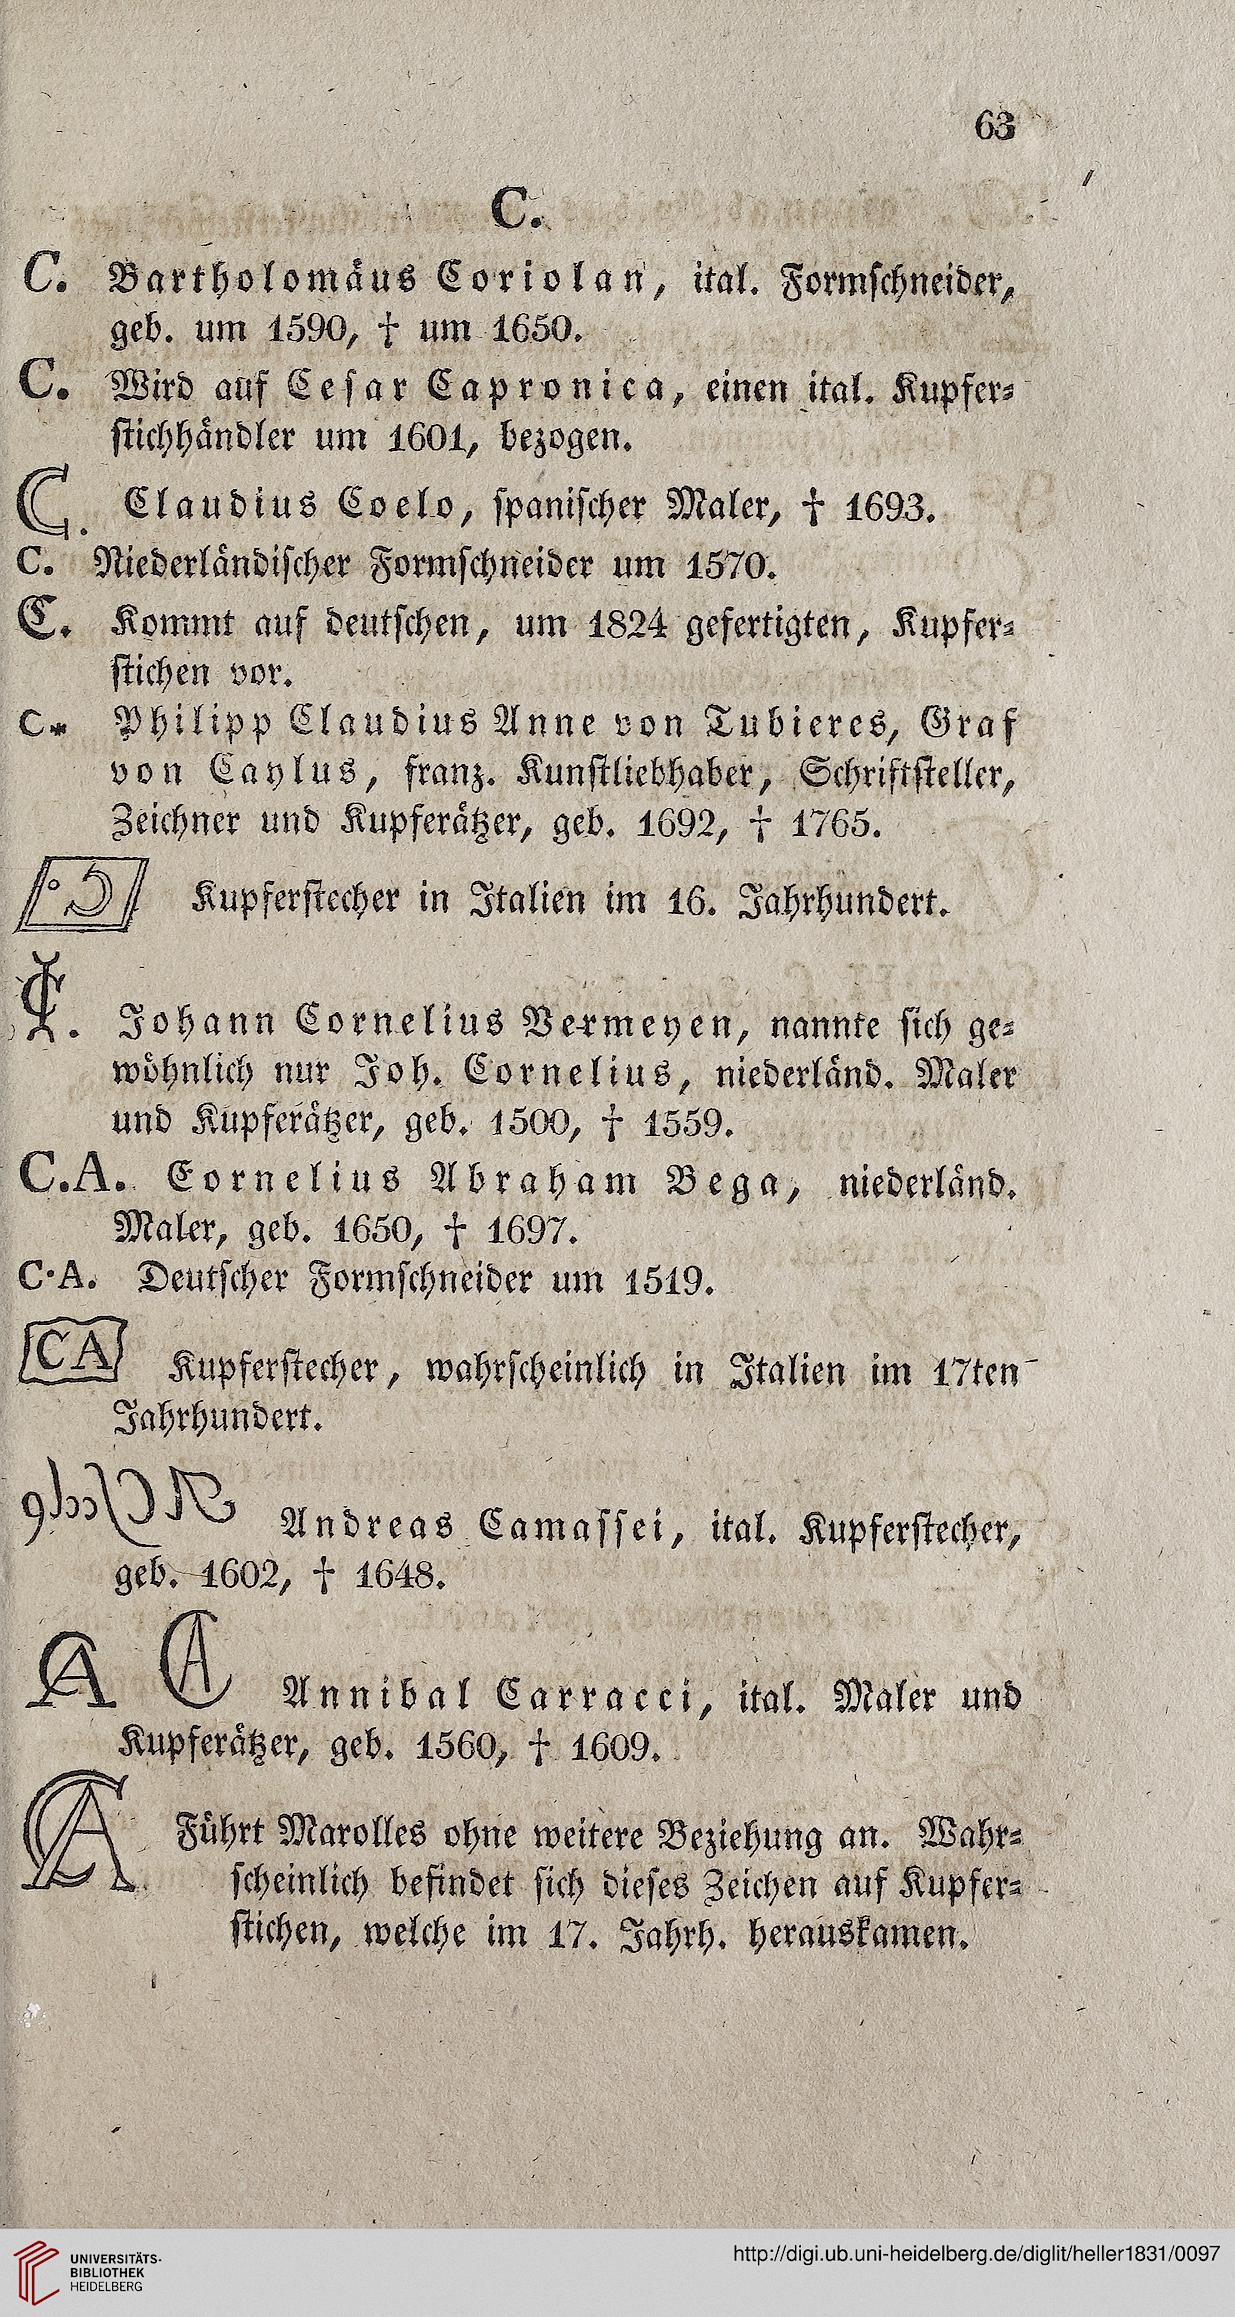 63
C.
C. Bartholomäus Coriolan, ital. Formschneider,
geb. um 1590, † um 1650.
C. Wird auf Cesar Capronica, einen ital. Kupfer-
stichhändler um 1601, bezogen.
C. Claudius Coelo, spanischer Maler, † 1693.
C. Niederländischer Formschneider um 1570.
C. Kommt auf deutschen, um 1824 gefertigten, Kupfer-
stichen vor.
C* Philipp Claudius Anne von Tubieres, Graf
von Caylus, franz. Kunstliebhaber, Schriftsteller,
Zeichner und Kupferätzer, geb. 1692, † 1765.
Kupferstecher in Italien im 16. Jahrhundert.
Johann Cornelius Vermeyen, nannte sich ge-
wöhnlich nur Joh. Cornelius, niederländ. Maler
und Kupferätzer, geb. 1500, † 1559.
C.A. Cornelius Abraham Bega, niederländ.
Maler, geb. 1650, † 1697.
C·A. Deutscher Formschneider um 1519.
CA Kupferstecher, wahrscheinlich in Italien im 17ten
Jahrhundert.
Andreas Camassei, ital. Kupferstecher,
geb. 1602, † 1648.
CA CA Annibal Carracci, ital. Maler und
Kupferätzer, geb. 1560, † 1609.
CA Führt Marolles ohne weitere Beziehung an. Wahr-
scheinlich befindet sich dieses Zeichen auf Kupfer-
stichen, welche im 17. Jahrh. herauskamen.
UNIVERSITÄTS-
BIBLIOTHEK
HEIDELBERG
http://digi.ub.uni-heidelberg.de/diglit/heller1831/0097